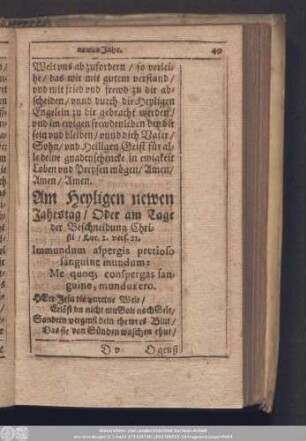 newen Jahr. 49
Welt vns abzufordern / so verlei-
he / das wir mit gutem verstand /
vnd mit fried vnd frewd zu dir ab-
scheiden / vnnd durch die Heyligen
Engelein zu dir gebracht werden /
vnd im ewigen frewdenleben bey dir
sein vnd bleiben / vnnd dich Vater /
Sohn / vnd Heiligen Geist für al-
le deine gnadenschencke in ewigkeit
Loben vnd Preysen mögen / Amen /
Amen / Amen.
Am Heyligen newen
Jahrstag / Oder am Tage
der Beschneidung Chri-
sti / Luc. 2. vers. 21.
Immundum aspergis pretioso
sanguine mundum:
Me quoq; conspergas san-
guine, mundus ero.
HErr Jesu die vnreine Welt /
Erlöst du nicht mit Golt noch Gelt /
Sondern vergeust dein thewres Blut /
Das sie von Sünden waschen thut /
D v O geuß